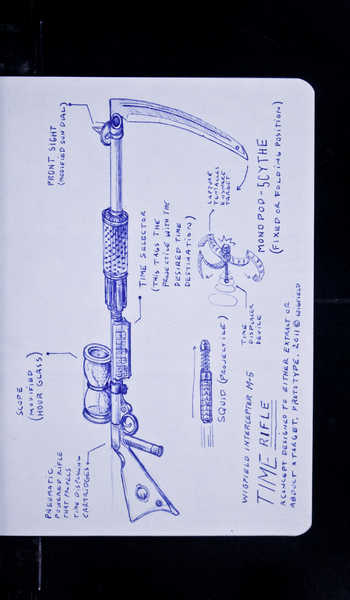 PNEUMATIC
POWERED RIFLE
THAT PROPELS
TIME DISPLACING
CARTRIDGES
SCOPE
(MODIFIED
HOUR GLASS)
TIME SELECTOR
(THIS TAGS THE
PROJECTILE WITH THE
DESIRED TIME
DESTINATION)
FRONT SIGHT
(MODIFIED SUN DIAL)
SQUID (PROJECTILE)
TIME
DISPLACER
DEVICE
CAPTURE
TENTACLES
ENSNARE
TARGET
MONOPOD-SCYTHE
(FIXED OR FOLDING POSITION)
WIGFIELD INTERCEPTER M-5
TIME RIFLE
A CONCEPT DESIGNED TO EITHER EXTRACT OR
ABDUCT A TARGET. PROTOTYPE. 2011 © WIGFIELD